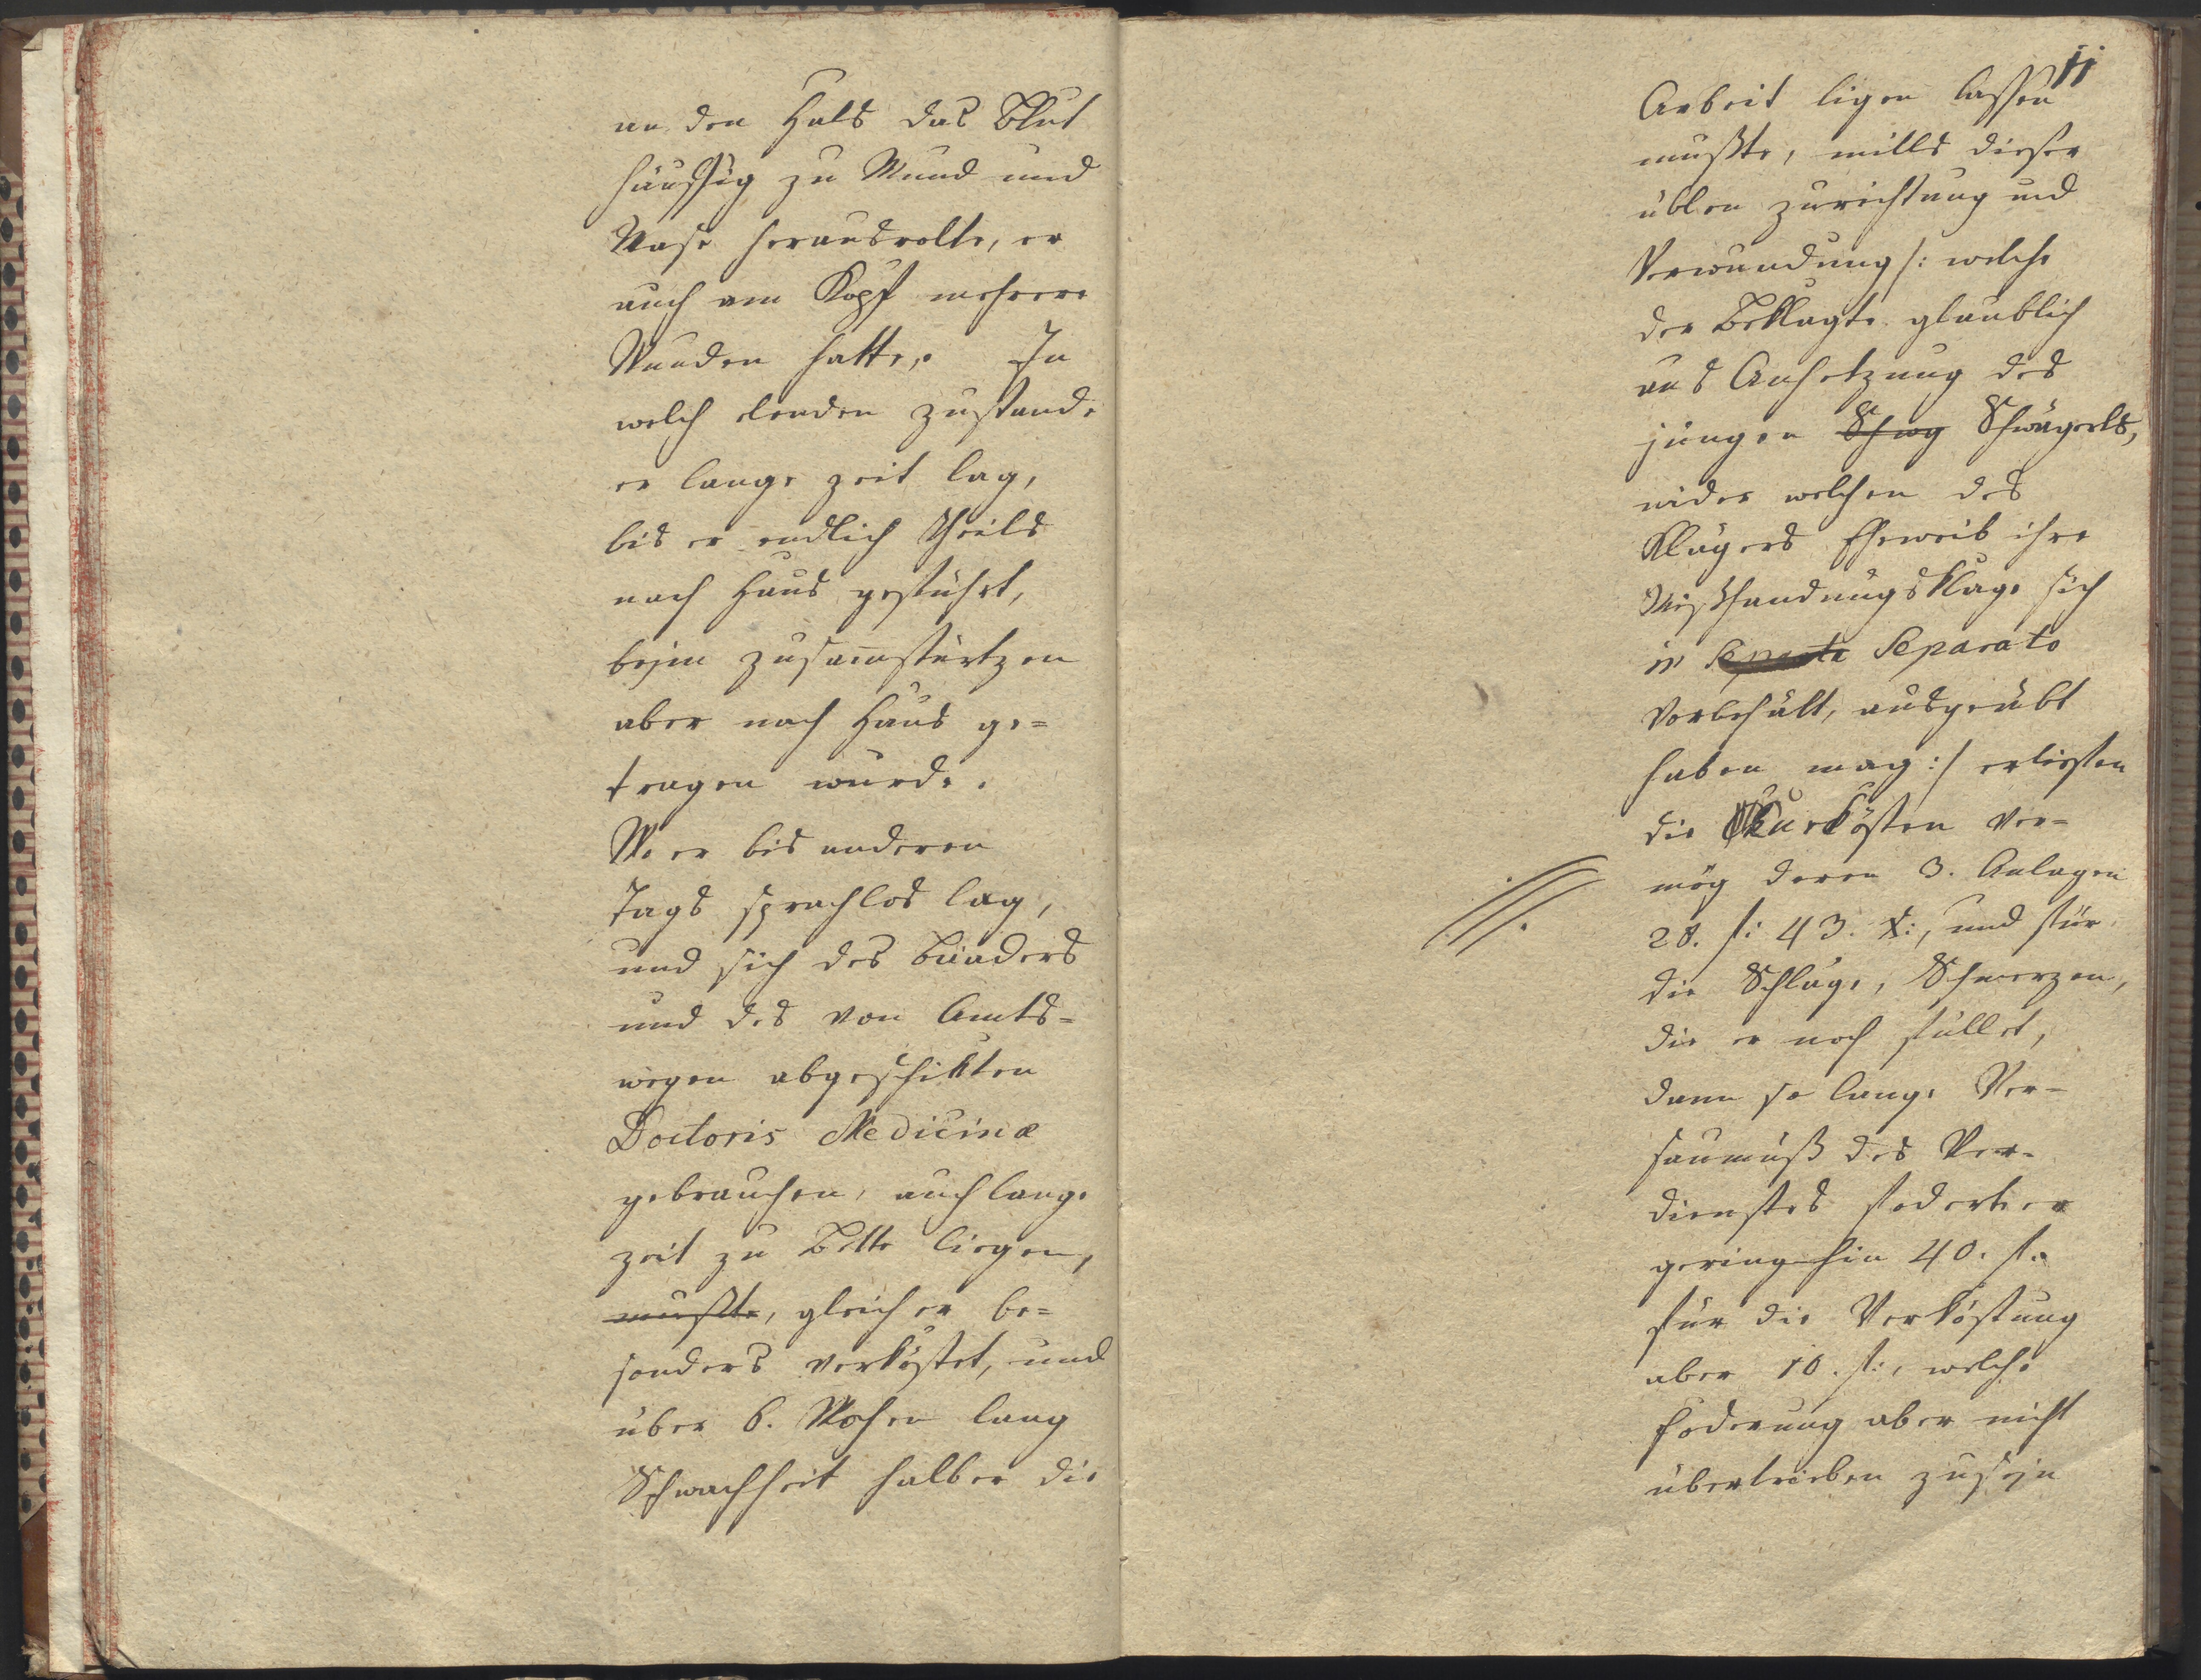 an den Hals das Blut
häuffig zu Mund und
Nase herausrolte, er
auch am Kopf mehrere
Wunden hatte,. In
welch elenden zustande
er lange zeit lag,
bis er endlich theils
nach Haus geführt,
beÿm zusam̄stürtzen
aber nach Haus ge=
tragen wurde.
Wo er bis anderen
Tags sprachlos lag,
und sich des Baaders
und des von Amts=
wegen abgeschikten
Doctoris Medicinæ
gebrauchen, auch lange
zeit zu Bette liegen,
mußte, gleich er be=
sonders verköstet, und
über 6. Wochen lang
Schwachheit halber die
11
Arbeit ligen lassen
mußte, mitls dieser
üblen zurichtung und
Verwundung /: welche
der Beklagte glaublich
aus Anhetzung des
jungen Schwg Schwägerls,
wider welchen des
Klägers Eheweib ihre
Mißhandungsklage sich
in Separato
Vorbehält, ausgeübt
haben mag :/ erliefen
die Kurkösten ver=
mög deren 3. Anlagen
28. f: 43. x:, und für
die Schläge, Schmerzen,
die er noch fühlet,
dann so lange Ver=
saumniß des Ver=
dienstes foderte er
gering hin 40. f.
für die Verköstung
aber 10. f:, welche
Foderung aber nicht
übertrieben zuseÿn